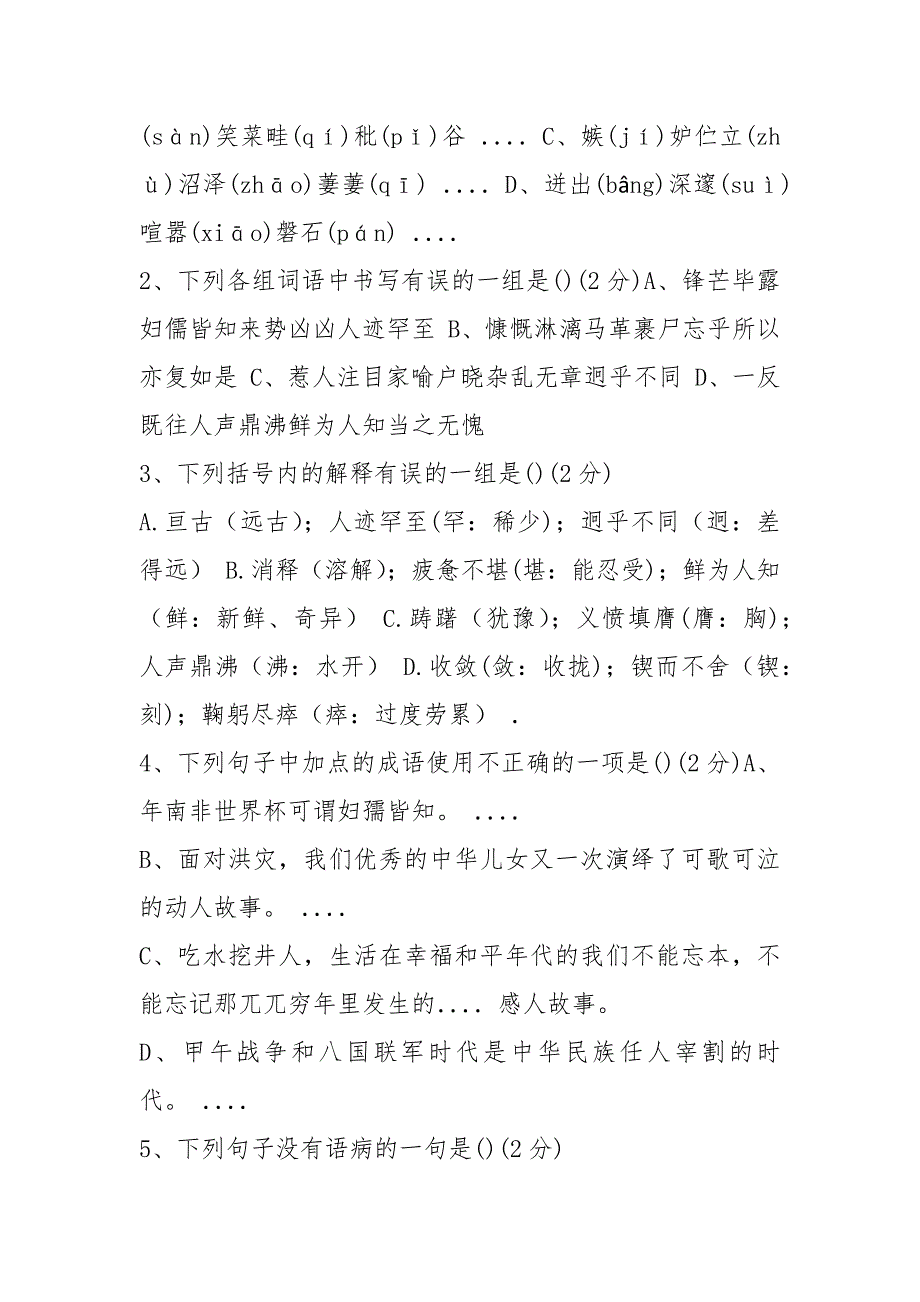 (sàn)笑菜畦(qí)秕(pǐ)谷 .... C、嫉(jí)妒伫立(zh
ù)沼泽(zhāo)萋萋(qī) .... D、迸出(bâng)深邃(suì)
喧嚣(xiāo)磐石(pán) ....
2、下列各组词语中书写有误的一组是()(2分)A、锋芒毕露
妇儒皆知来势凶凶人迹罕至 B、慷慨淋漓马革裹尸忘乎所以
亦复如是 C、惹人注目家喻户晓杂乱无章迥乎不同 D、一反
既往人声鼎沸鲜为人知当之无愧
3、下列括号内的解释有误的一组是()(2分)
A.亘古（远古）；人迹罕至(罕：稀少)；迥乎不同（迥：差
得远） B.消释（溶解）；疲惫不堪(堪：能忍受)；鲜为人知
（鲜：新鲜、奇异） C.踌躇（犹豫）；义愤填膺(膺：胸)；
人声鼎沸（沸：水开） D.收敛(敛：收拢)；锲而不舍（锲：
刻)；鞠躬尽瘁（瘁：过度劳累） .
4、下列句子中加点的成语使用不正确的一项是()(2分)A、
年南非世界杯可谓妇孺皆知。 ....
B、面对洪灾，我们优秀的中华儿女又一次演绎了可歌可泣
的动人故事。 ....
C、吃水挖井人，生活在幸福和平年代的我们不能忘本，不
能忘记那兀兀穷年里发生的.... 感人故事。
D、甲午战争和八国联军时代是中华民族任人宰割的时
代。 ....
5、下列句子没有语病的一句是()(2分)